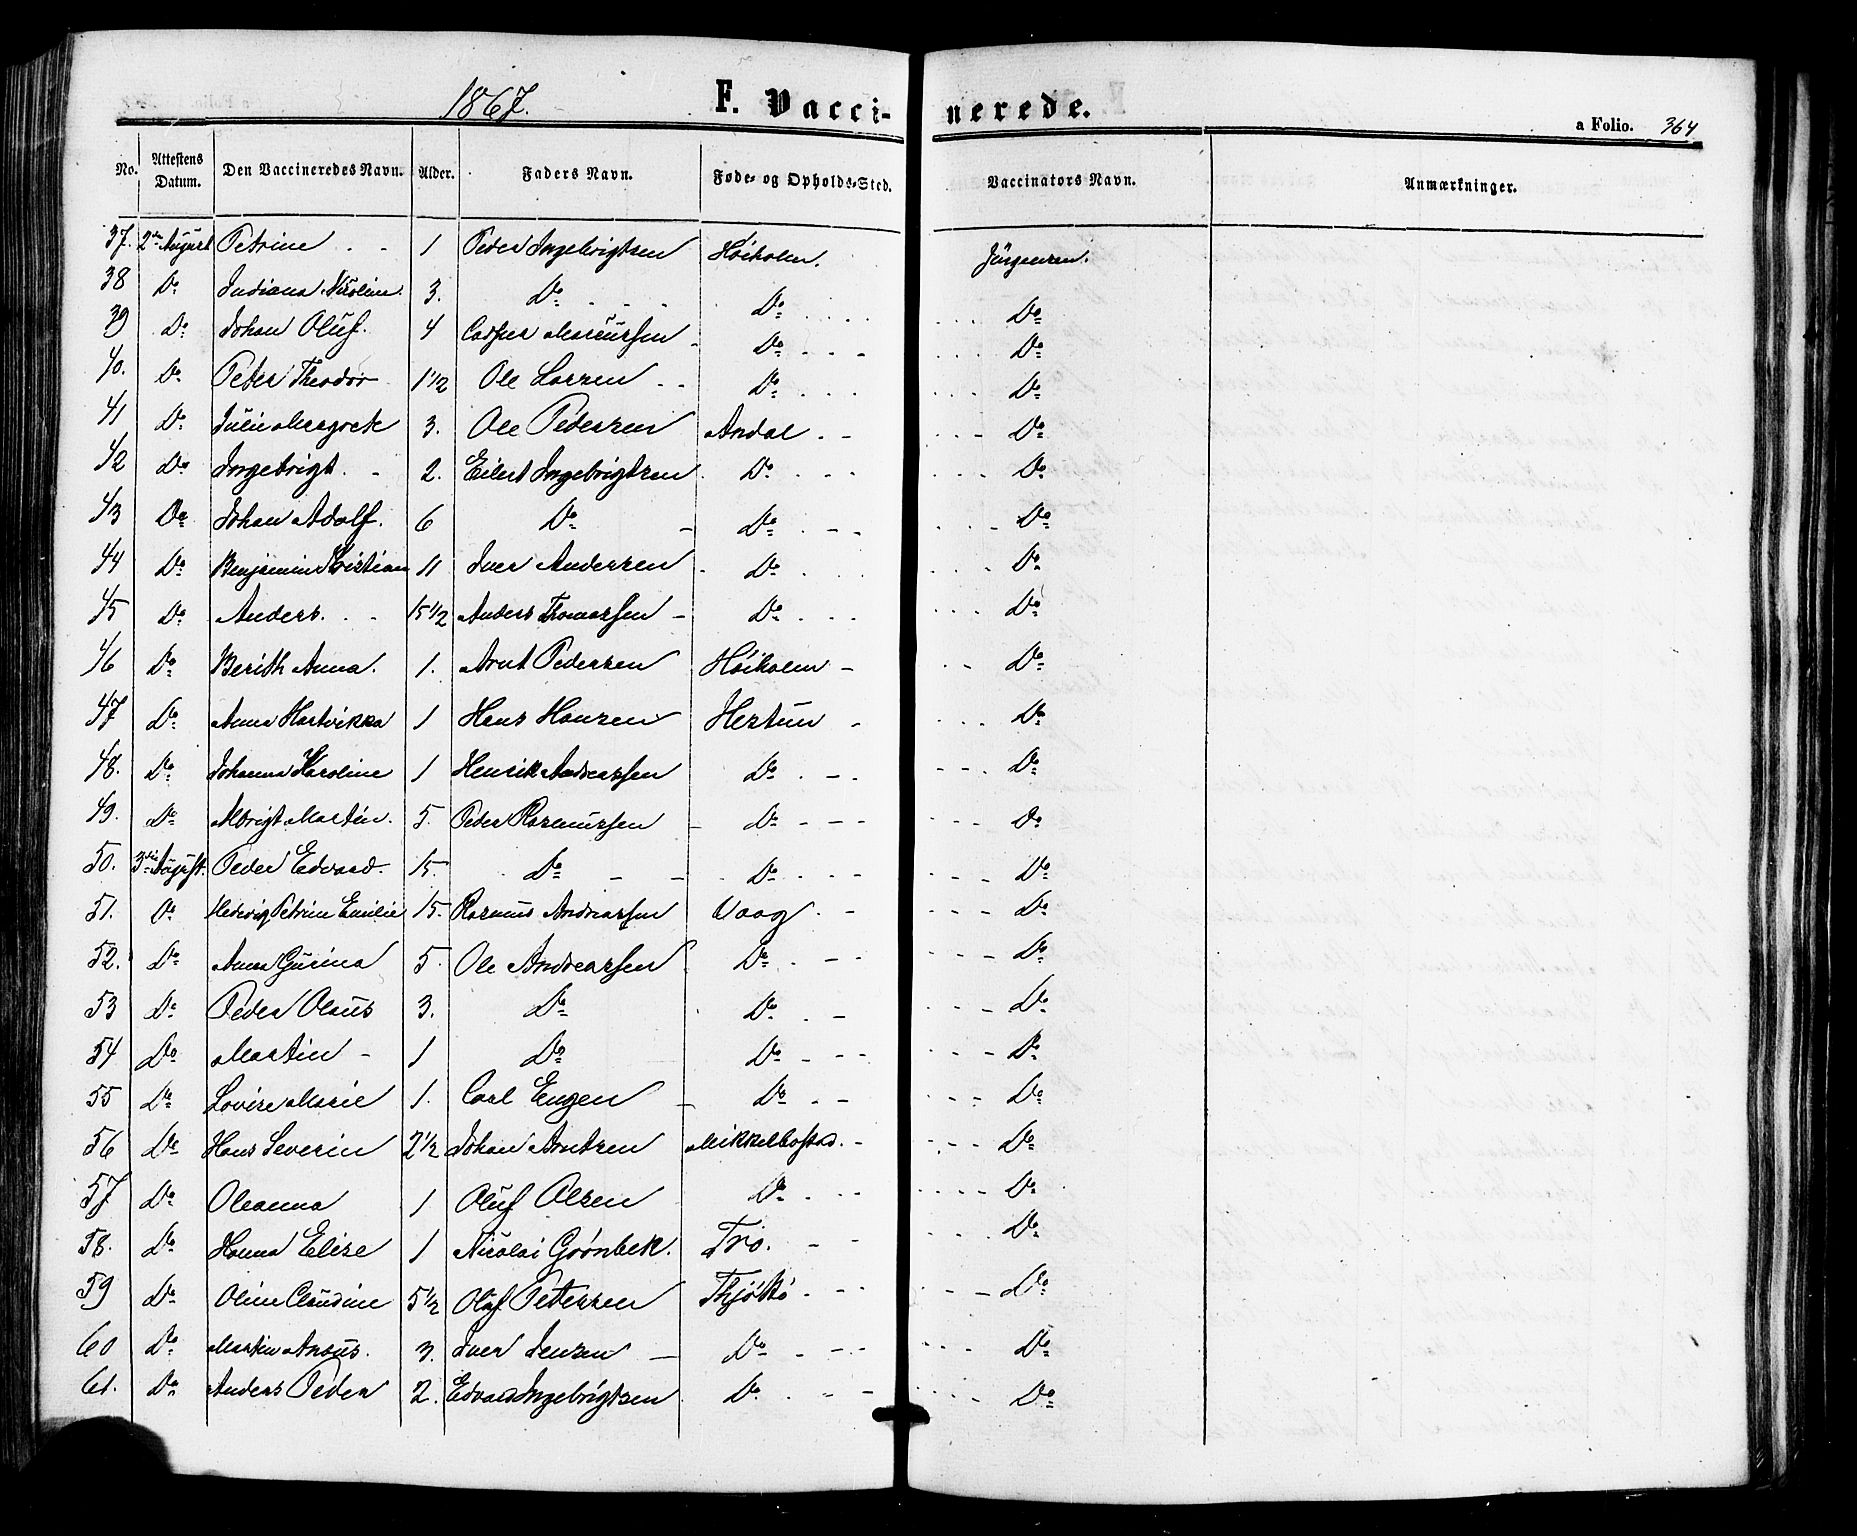 1867. F. Vaccinerede. a Folio. 364
No. Attestens Datum. Den Vaccineredes Navn. Alder. Faders Navn. Føde- og Opholds-Sted. Vaccinators Navn. Anmærkninger.
37. 2den August Petrine - - 1 Peder Ingebrigtsen Høiholm. Jürgensen.
38 Do Indiana Nicoline. 3. Do Do Do
39 Do Johan Oluf. 4 Casper Marcussen Do Do
40. Do Peter Theodor 1 1/2 Ole Larsen Do Do
41 Do Julie 3. Ole Pedersen Andal Do
42 Do Ingebrigt. 2. Eilert Ingebrigtsen Do Do
43 Do Johan Adolf. 6 Do Do Do
44 Do Benjamin Kristian 11 Iver Andersen Do Do
45 Do Anders. 15 1/2 Anders Thomassen Do Do
46 Do Berith Anna. 1. Arnt Pedersen Høiholm Do
47 Do Anna Hartvikka 1 Hans Hansen Hestun Do
48. Do Johanna Karoline 1 Henrik Andreassen Do Do
49. Do Albrigt Martin. 5. Peder Rasmussen Do Do
50. 3die August. Peder Edvard. 15. Do Do Do
51. Do Hedevig Petrine Emilie 15. Rasmus Andreassen Vaag Do
52. Do Anna Gurina 5. Ole Andreassen Do Do
53 Do Peder Olaus 3. Do Do Do
54 Do Martin 1 Do Do Do
55 Do Lovise Marie 1. Carl Engen Do Do
56 Do Hans Severin 2 1/2 Johan Arntsen Mikkelbostad. Do
57 Do Oleanna 1 Oluf Olsen Do Do
58. Do Hanna Elise 1 Nicolai Grønbek. Tro. Do
59 Do Oline Claudine 5 1/2 Oluf Petersen Thjøttø Do
60 Do Martin 3. Iver Jensen Do Do
61. Do Anders Peder 2. Edvard Ingebrigtsen Do Do